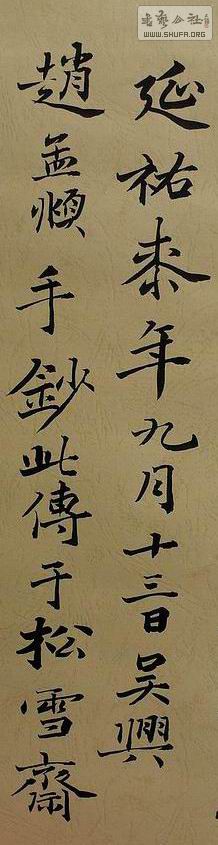 書藝公社
WWW.SHUFA.ORG
延祐桼年九月十三日吳興
趙孟頫手鈔此傳于松雪齋